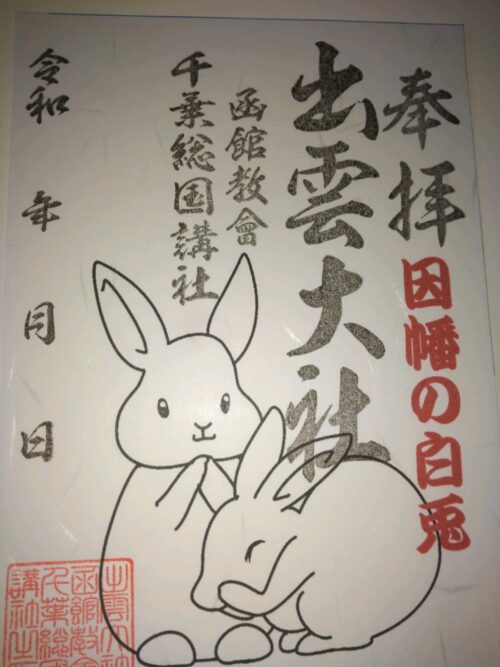 奉拝
因幡の白兎
出雲大社
函館教會
千葉総国講社
令和 年 月 日